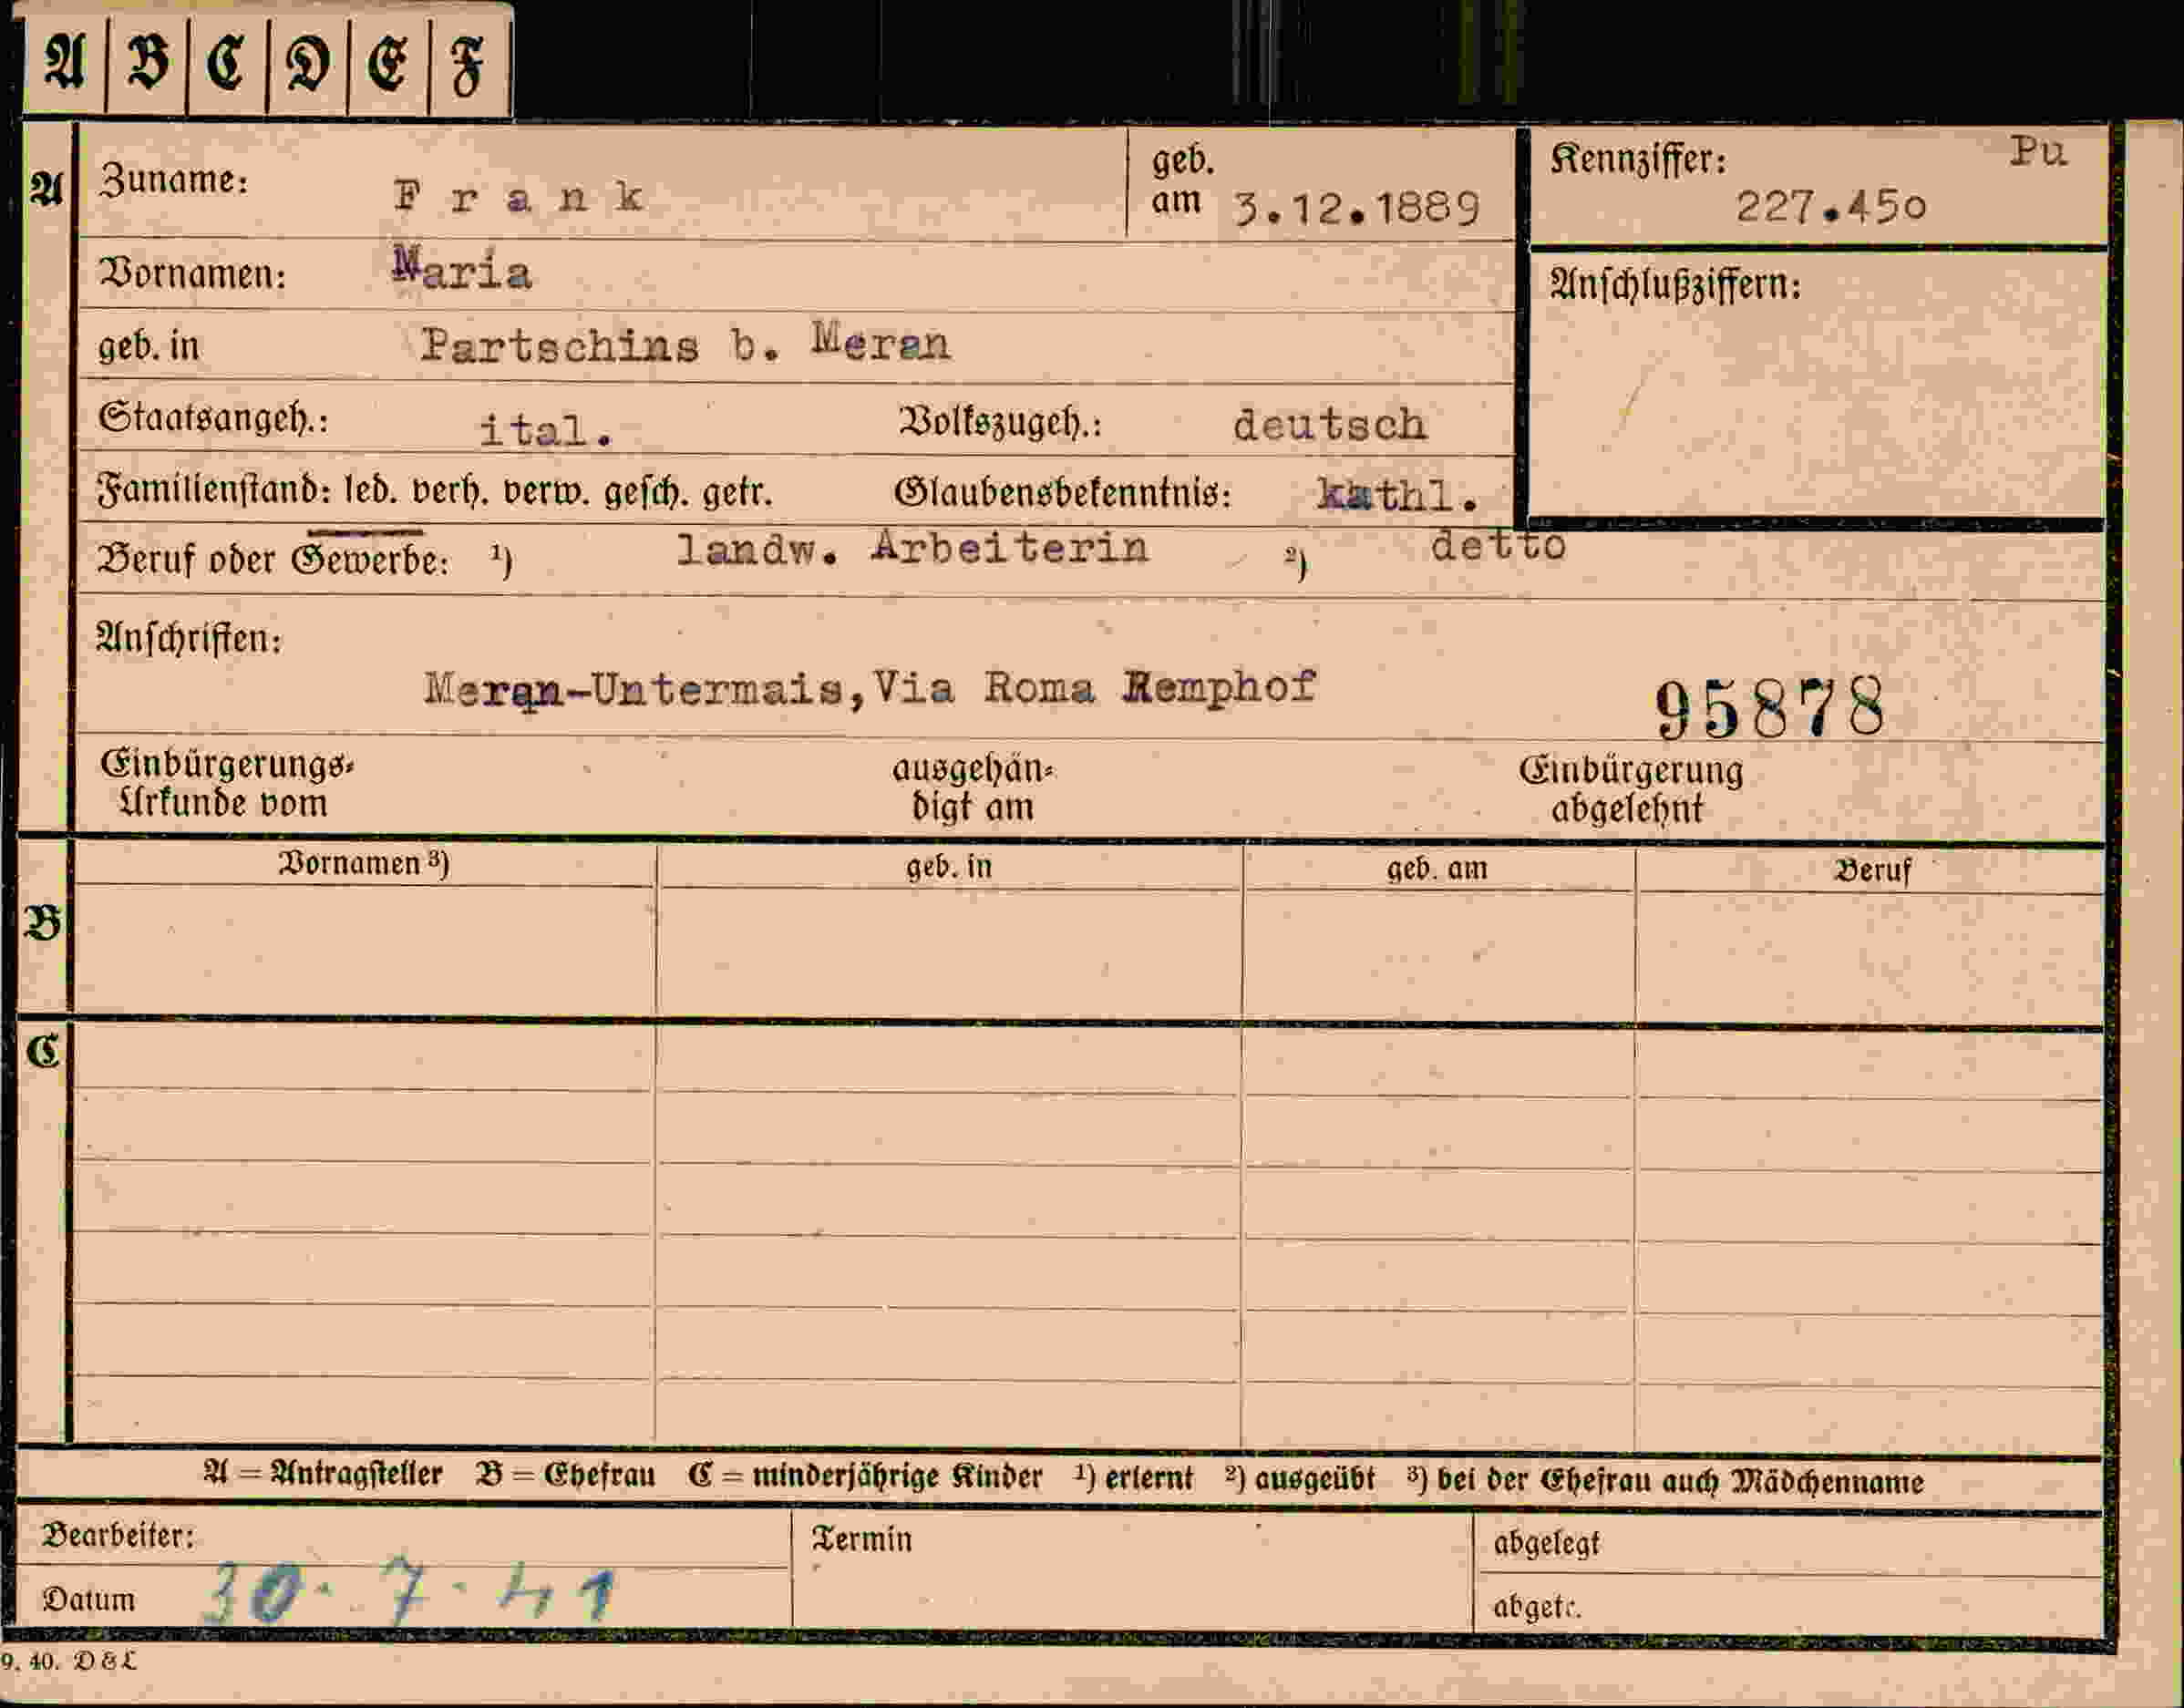 A B C D E F
A Zuname: Frank geb. am 3.12.1889 Kennziffer: Pu 227.450
Vornamen: Maria Anschlußziffern:
geb. in Partschins b. Meran
Staatsangeh.: ital. Volkszugeh.: deutsch
Familienstand: led. verh. verw. gesch. getr. Glaubensbekenntnis: kathl.
Beruf oder Gewerbe: 1) landw. Arbeiterin 2) detto
Anschriften:
Meran-Untermais, Via Roma Remphof 95878
Einbürgerungs- ausgehän- Einbürgerung
Urkunde vom digt am abgelehnt
Vornamen 3) geb. in geb. am Beruf
B
C
A = Antragsteller B = Ehefrau C = minderjährige Kinder 1) erlernt 2) ausgeübt 3) bei der Ehefrau auch Mädchenname
Bearbeiter: Termin abgelegt
Datum 30.7.41 abgetr.
9. 40. D & L